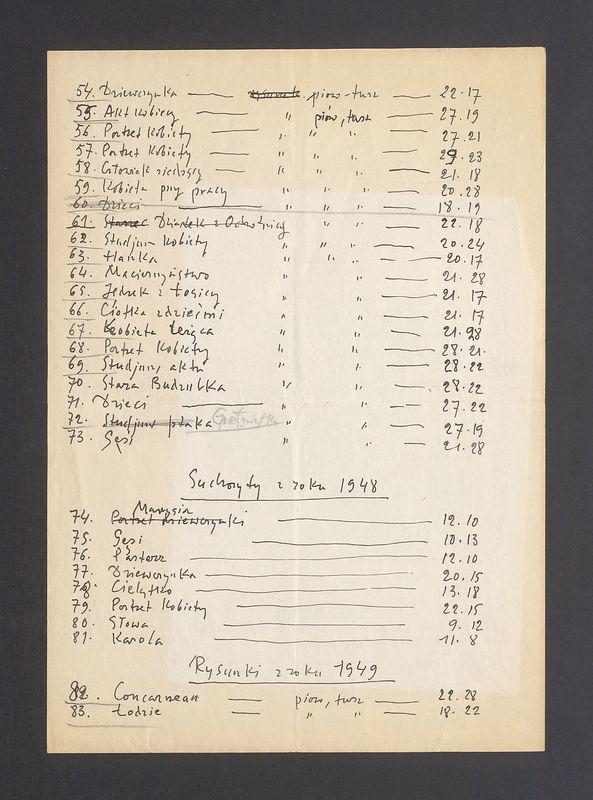 54. Dziewczynka — piów-tusz — 22.17
55. Akt kobiecy " piów, tusz 27.19
56. Portret kobiety — " " " 27.21
57. Portret kobiety — " " 29.23
58. Człowiek siedzący — " " " 21.18
59. Kobieta przy pracy " " " — 20.28
60. Dzieci — " " " — 18.19
61. Starzec Dziadek z Ochotnicy " " " — 22.18
62. Studjum kobiety " " " — 20.24
63. Hanka " " " — 20.17
64. Macierzyństwo " " — 21.28
65. Jędrek z Łogicy " " — 21.17
66. Ciotka z dziećmi " " — 21.17
67. Kobieta leżąca " " — 21.28
68. Portret kobiety " " — 28.21.
69. Studjum aktu " " — 28.22
70. Stara Budzulka " " — 28.22
71. Dzieci — " " — 27.22
72. Studjum ptaka " " — 27.19
73. Gęsi " " 21.28
Suchoryty z roku 1948
Marysia
74. Portret dziewczynki — 12.10
75. Gęsi — 10.13
76. Pasterz — 12.10
77. Dziewczynka — 20.15
78. Cielątko — 13.18
79. Portret kobiety — 22.15
80. Głowa — 9.12
81. Karola — 11.8
Rysunki z roku 1949
82. Concarneau — piów, tusz — 22.28
83. Łodzie — " " — 18.22